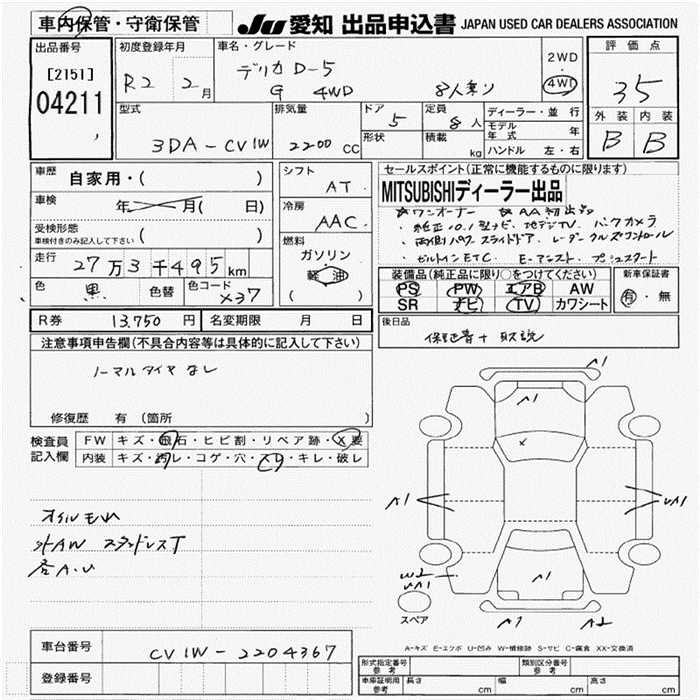 車内保管・守衛保管
JU 愛知 出品申込書 JAPAN USED CAR DEALERS ASSOCIATION
出品番号
[2151]
04211
初度登録年月
R2 2月
車名・グレード
デリカ D-5
G 4WD 8人乗り
2WD
・
4WD
評価点
3.5
外装 内装
B B
型式
3DA-CV1W
排気量
2200 CC
ドア
5
形状
定員
8人
積載
kg
ディーラー・並行
モデル年式 年
ハンドル 左・右
車歴 自家用・( )
車検 年 月( 日)
受検形態
車検付きのみ記入して下さい ( )
走行 27万3千495km
色 黒 色替 色コード X37
シフト
AT
冷房
AAC
燃料
ガソリン
軽油
( )
セールスポイント(正常に機能するものに限ります)
MITSUBISHIディーラー出品
☆ワンオーナー ☆AA初出品
・純正10.1型ナビ 地デジTV バックカメラ
・両側パワースライドドア レーダークルーズコントロール
・ビルトインETC E-アシスト プッシュスタート
装備品(純正品に限り○をつけてください)
PS PW エアB AW
SR ナビ TV カワシート
新車保証書
有・無
R券 13,750円 名変期限 月 日
後日品
保証書+取説
注意事項申告欄(不具合内容等は具体的に記入して下さい)
ノーマルタイヤなし
修復歴 有 (箇所 )
検査員記入欄
FW キズ・飛石・ヒビ割・リペア跡・X要
内装 キズ・汚レ・コゲ・穴・スレ・キレ・破レ
オイルモレ
外AW スタッドレスT
各A.U
A1
A1
A1
A1
W2
UA1
A1
A1
A2
スペア
A-キズ E-エクボ U-凹み W-補修跡 S-サビ C-腐食 XX-交換済
車台番号 CV1W-2204367
登録番号
形式指定番号 参考
類別区分番号 参考
車庫証明用 参考 長さ cm 幅 cm 高さ cm